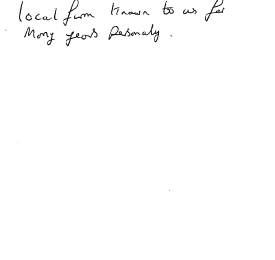 local firm known to us for
Many years Personaly.